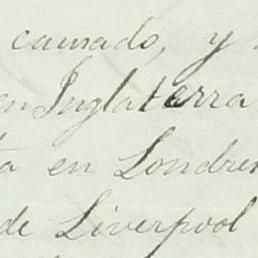 causado, y
en Inglaterra
en Londres
de Liverpool